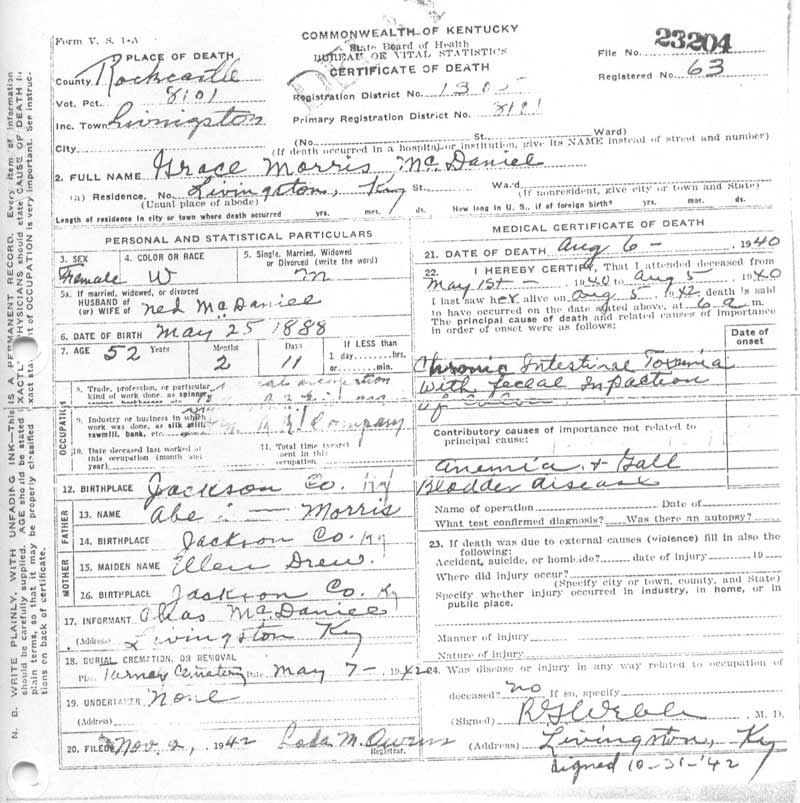 Form V. S. 1-A
COMMONWEALTH OF KENTUCKY
State Board of Health
BUREAU OF VITAL STATISTICS
CERTIFICATE OF DEATH
File No. 23204
Registered No. 63
PLACE OF DEATH
County Rockcastle
Vot. Pct. 8101
Inc. Town Livingston
City
Registration District No. 1305
Primary Registration District No. 8101
(No. St., Ward)
(If death occurred in a hospital or institution, give its NAME instead of street and number)
2. FULL NAME Grace Morris McDaniel
(a) Residence, No. Livingston, Ky St. Ward
(Usual place of abode) (If nonresident, give city or town and State)
Length of residence in city or town where death occurred yrs. mos. ds. How long in U. S., if of foreign birth? yrs. mos. ds.
PERSONAL AND STATISTICAL PARTICULARS
3. SEX
Female
4. COLOR OR RACE
W
5. Single, Married, Widowed or Divorced (write the word)
M
5a. If married, widowed, or divorced
HUSBAND of
(or) WIFE of Ned McDaniel
6. DATE OF BIRTH May 25 1888
7. AGE 52 Years 2 Months 11 Days
If LESS than
1 day, hrs.
or min.
OCCUPATION
8. Trade, profession, or particular
kind of work done, as spinner,
9. Industry or business in which
work was done, as silk mill,
sawmill, bank, etc. Company
10. Date deceased last worked at
this occupation (month and
year)
11. Total time (years)
spent in this
occupation
12. BIRTHPLACE Jackson Co. Ky
FATHER
13. NAME Abe Morris
14. BIRTHPLACE Jackson Co. Ky
MOTHER
15. MAIDEN NAME Ellen Drew
16. BIRTHPLACE Jackson Co. Ky
17. INFORMANT Chas McDaniel
(Address) Livingston Ky
18. BURIAL, CREMATION, OR REMOVAL
Cemetery Date May 7 - 1942
19. UNDERTAKER None
(Address)
20. FILED Nov 2, 1942 M. Owens
Registrar.
MEDICAL CERTIFICATE OF DEATH
21. DATE OF DEATH Aug 6 - 1940
22. I HEREBY CERTIFY, That I attended deceased from
May 1st - 1940 to Aug 5 1940
I last saw her alive on Aug 5 1942 death is said
to have occurred on the date stated above, at 6 a m.
The principal cause of death and related causes of importance
in order of onset were as follows:
Date of onset
Chronic Intestinal Toxemia
with fecal Impaction
of Colon
Contributory causes of importance not related to
principal cause:
Anemia + Gall
Bladder disease
Name of operation Date of
What test confirmed diagnosis? Was there an autopsy?
23. If death was due to external causes (violence) fill in also the
following:
Accident, suicide, or homicide? date of injury 19
Where did injury occur?
(Specify city or town, county, and State)
Specify whether injury occurred in industry, in home, or in
public place.
Manner of injury
Nature of injury
24. Was disease or injury in any way related to occupation of
deceased? no If so, specify
(Signed) R G Webb M. D.
(Address) Livingston, Ky
signed 10-31-'42
N. B. WRITE PLAINLY, WITH UNFADING INK—This is a PERMANENT RECORD. Every item of information
should be carefully supplied. AGE should be stated EXACTLY. PHYSICIANS should state CAUSE OF DEATH in
plain terms, so that it may be properly classified. Exact statement of OCCUPATION is very important. See instruc-
tions on back of certificate.